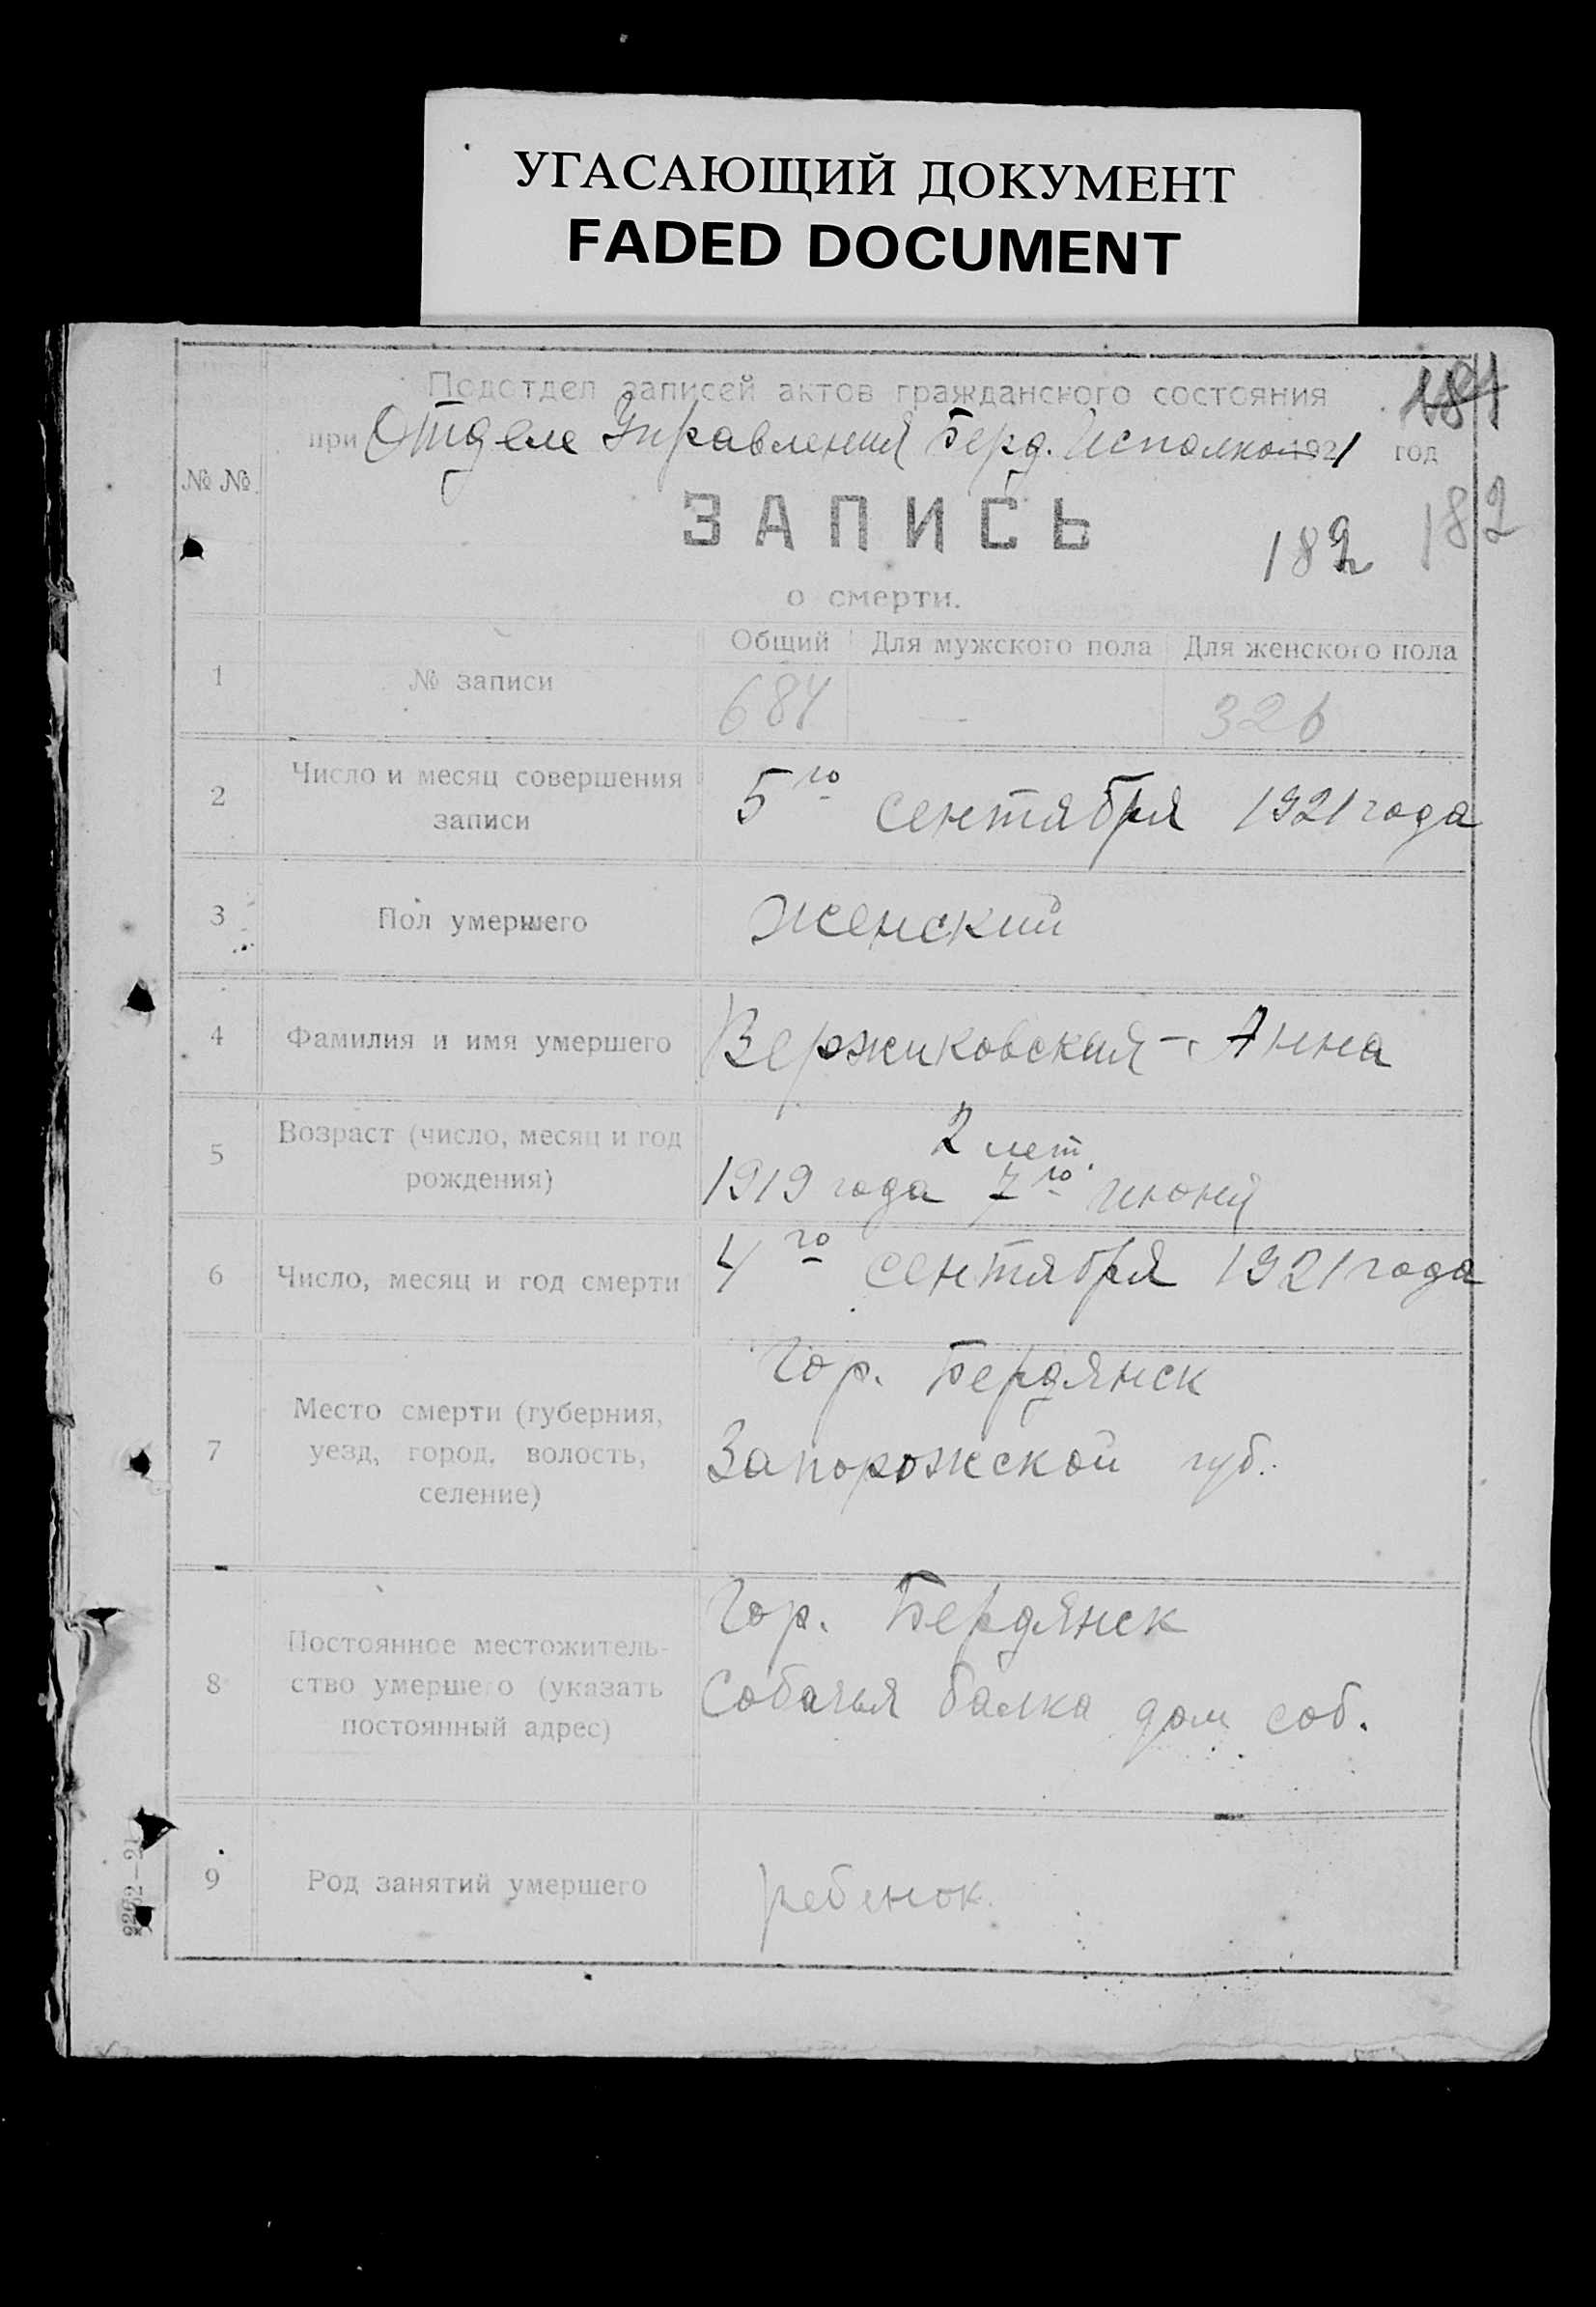 УГАСАЮЩИЙ ДОКУМЕНТ
FADED DOCUMENT
Подотдел записей актов гражданского состояния
при Отделе Управления Берд. Исполком 1921 год
№ №
ЗАПИСЬ
182 182
о смерти.
1 № записи Общий Для мужского пола Для женского пола
684 — 326
2 Число и месяц совершения
записи
5го сентября 1921 года
3 Пол умершего Женский
4 Фамилия и имя умершего Вержиковская - Анна
5 Возраст (число, месяц и год
рождения)
2 лет
1919 года 7го июня
6 Число, месяц и год смерти 4го сентября 1921 года
7 Место смерти (губерния,
уезд, город, волость,
селение)
Гор. Бердянск
Запорожской губ.
8 Постоянное местожитель-
ство умершего (указать
постоянный адрес)
Гор. Бердянск
Собачья балка дом соб.
9 Род занятий умершего ребенок